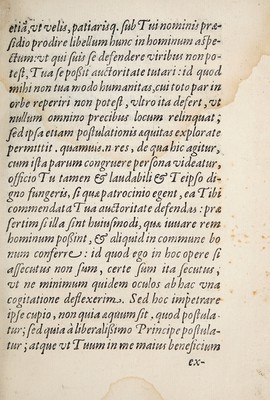 etiā, ut velis, patiarisq. sub Tui nominis præ-
sidio prodire libellum hunc in hominum aspe-
ctum: ut qui suis se defendere viribus non po-
test, Tua se possit auctoritate tutari: id quod
mihi non tua modo humanitas, cui toto par in
orbe reperiri non potest, vltro ita defert, vt
nullum omnino precibus locum relinquat;
sed ipsa etiam postulationis aequitas explorate
permittit. quamuis.n res, de qua hic agitur,
cum ista parum congruere persona videatur,
officio Tu tamen & laudabili & Te ipso di-
gno fungeris, si quæ patrocinio egent, ea Tibi
commendata Tua auctoritate defendas: præ
sertim si illa sint huiusmodi, quæ iuuare rem
hominum possint, & aliquid in commune bo
num conferre: id quod ego in hoc opere si
assecutus non sum, certe sum ita secutus,
vt ne minimum quidem oculos ab hac vna
cogitatione deflexerim. Sed hoc impetrare
ipse cupio, non quia æquum sit, quod postula-
tur; sed quia à liberalissimo Principe postula-
tur; atque vt Tuum in me maius beneficium
ex-